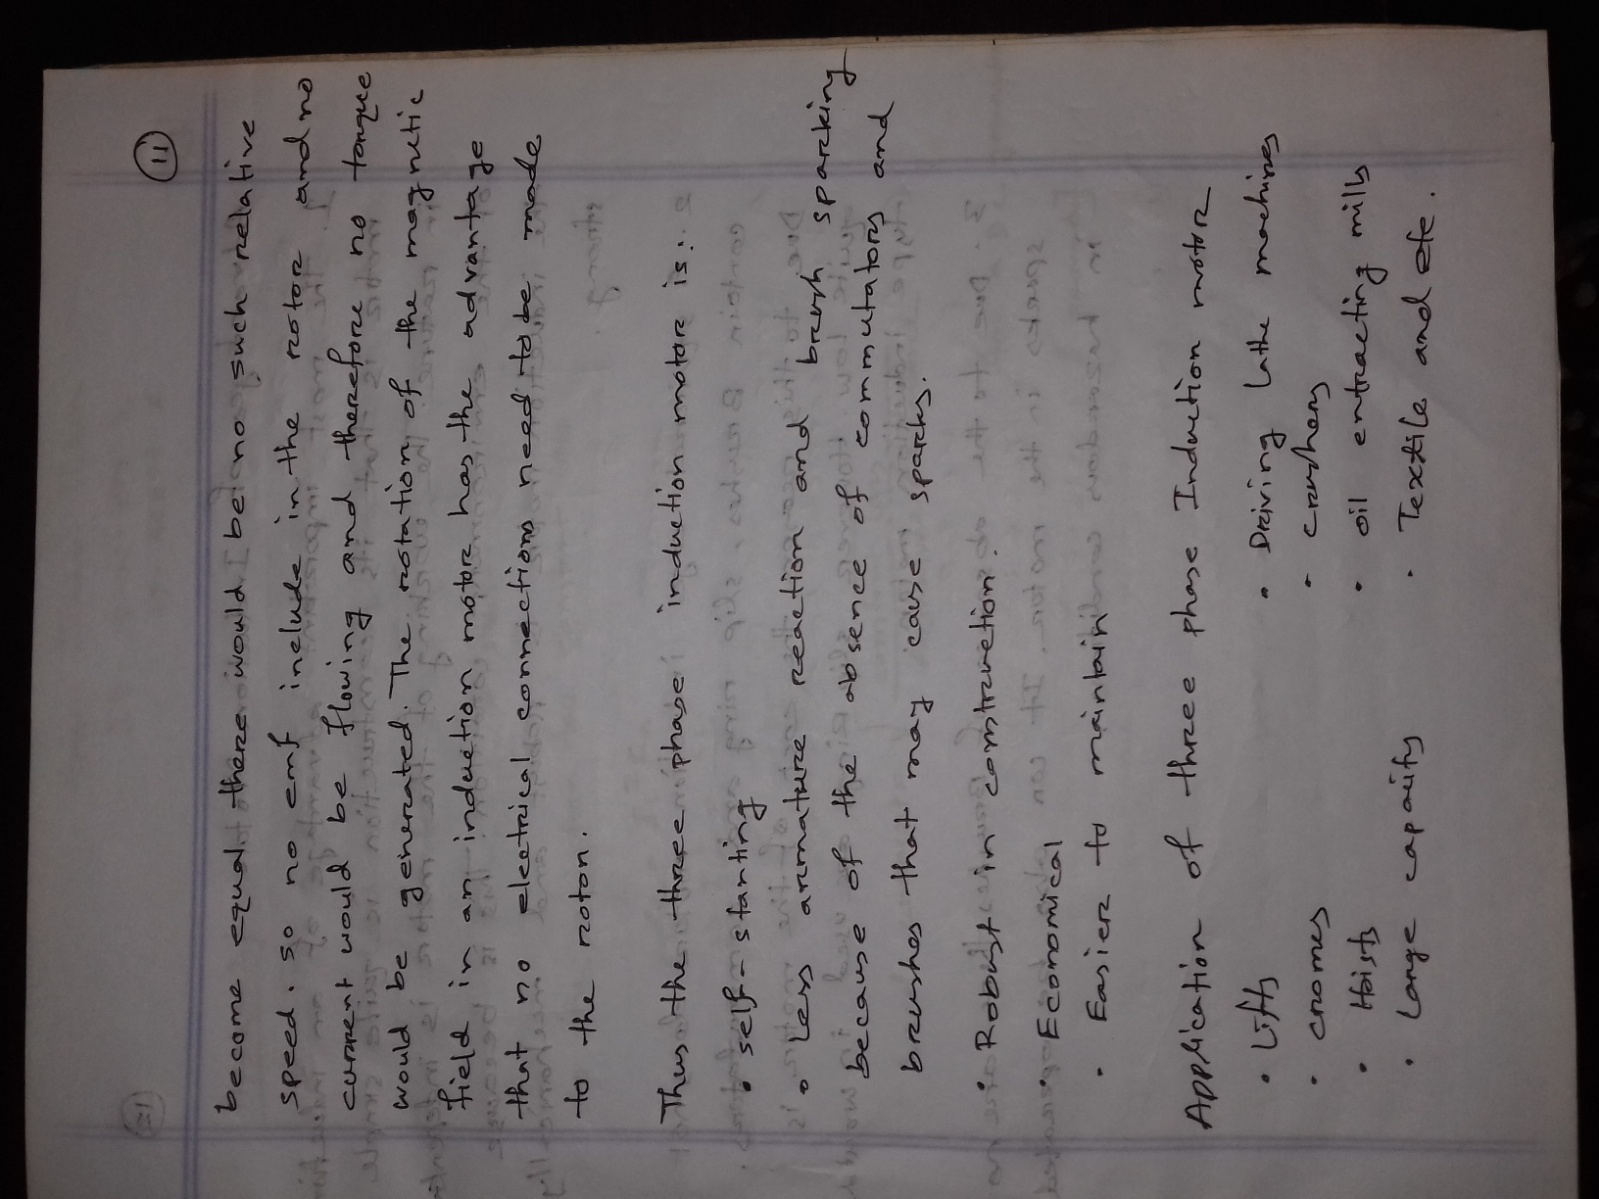 11
become equal there would be no such relative
speed. so no emf include in the rotor and no
current would be flowing and therefore no torque
would be generated. The rotation of the magnetic
field in an induction motor has the advantage
that no electrical connections need to be made
to the rotor.
Thus the three phase induction motor is:
• self-starting
• Less armature reaction and brush sparking
because of the absence of commutators and
brushes that may cause sparks.
• Robust in construction.
• Economical
• Easier to maintain
Application of three phase Induction motor
• Lifts • Driving lathe machines
• cranes • crushers
• Hoists • oil extracting mills
• Large capacity • Textile and etc.